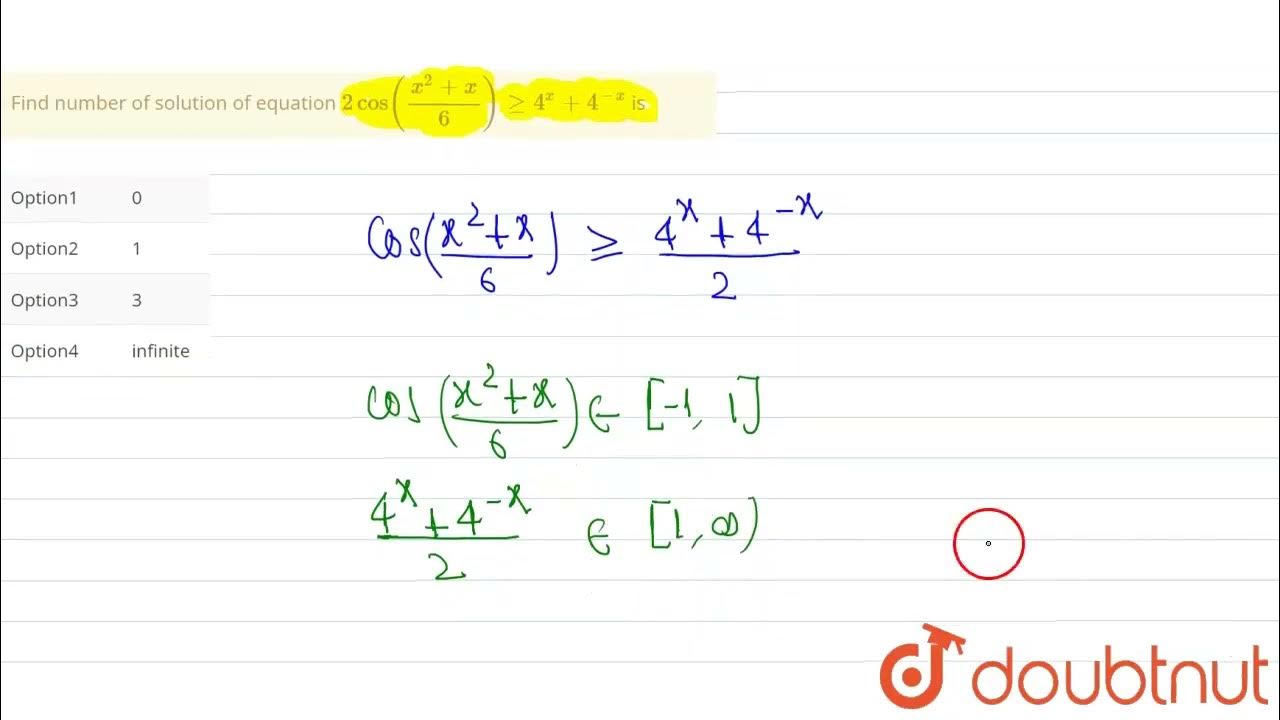 Find number of solution of equation 2 cos((x² + x)/6) ≥ 4ˣ + 4⁻ˣ is
Option1 0
Option2 1
Option3 3
Option4 infinite
Cos((x² + x)/6) ≥ (4ˣ + 4⁻ˣ)/2
cos((x² + x)/6) ∈ [-1, 1]
(4ˣ + 4⁻ˣ)/2 ∈ [1, ∞)
doubtnut